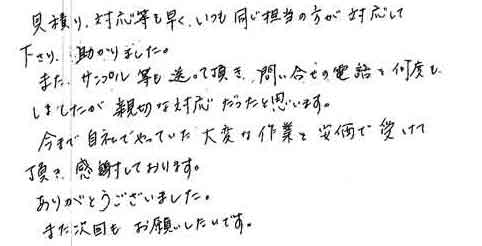 見積り、対応等も早く、いつも同じ担当の方が対応して
下さり、助かりました。
また、サンプル等も送って頂き、問い合せの電話も何度も
しましたが親切な対応だったと思います。
今まで自社でやっていた大変な作業を安価で受けて
頂き、感謝しております。
ありがとうございました。
また次回もお願いしたいです。